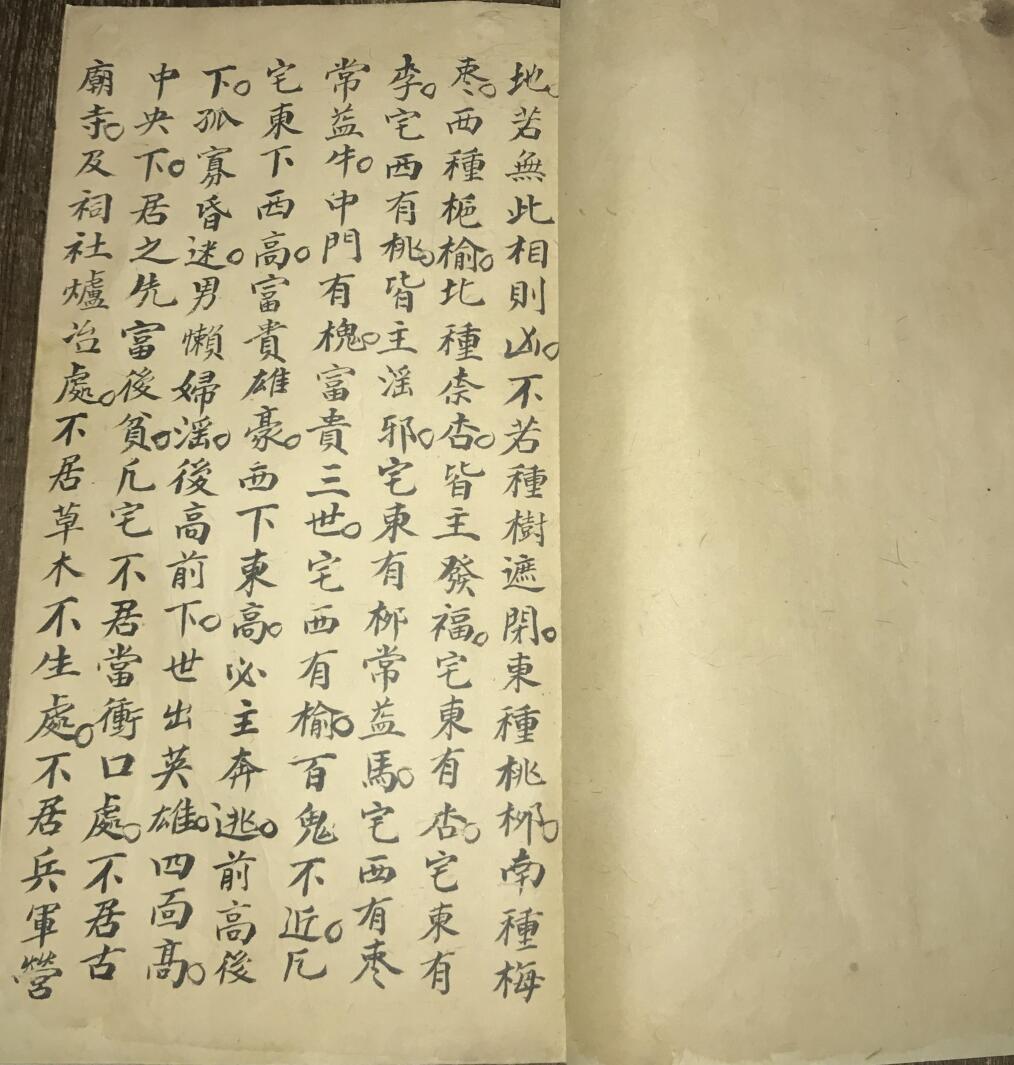 地。若無此相則凶。不若種樹遮閉。東種桃柳。南種梅
棗。西種梔榆。北種柰杏。皆主發福。宅東有杏。宅東有
李。宅西有桃。皆主滛邪。宅東有柳常益馬。宅西有棗
常益牛。中門有槐。富貴三世。宅西有榆。百鬼不近。凡
宅東下西高。富貴雄豪。西下東高。必主奔逃。前高後
下。孤寡昏迷。男懶婦滛。後高前下。世出英雄。四面髙。
中央下。居之先富後貧。凡宅不居當衝口處。不居古
廟寺。及祠社爐冶處。不居草木不生處。不居兵軍營